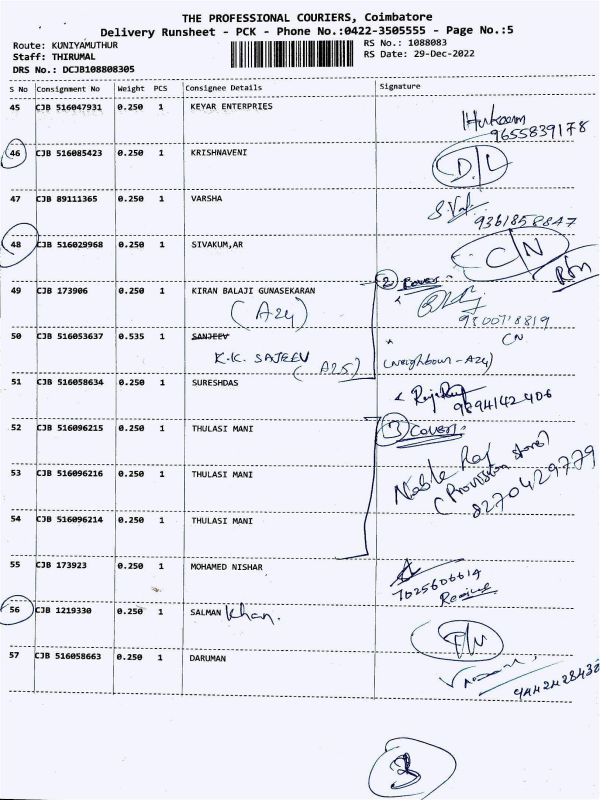 THE PROFESSIONAL COURIERS, Coimbatore
Delivery Runsheet - PCK - Phone No.:0422-3505555 - Page No.:5
Route: KUNIYAMUTHUR RS No.: 1088083
Staff: THIRUMAL RS Date: 29-Dec-2022
DRS No.: DCJB108808305
S No Consignment No Weight PCS Consignee Details Signature
45 CJB 516047931 0.250 1 KEYAR ENTERPRIES
9655839178
46 CJB 516085423 0.250 1 KRISHNAVENI D/L
47 CJB 89111365 0.250 1 VARSHA
9361858847
48 CJB 516029968 0.250 1 SIVAKUM,AR C/N
② Cover:
49 CJB 173906 0.250 1 KIRAN BALAJI GUNASEKARAN
(A24)
50 CJB 516053637 0.535 1 SANJEEV CN
K.K. SAJEEV (A25) (Neighbour - A24)
51 CJB 516058634 0.250 1 SURESHDAS
9894142406
52 CJB 516096215 0.250 1 THULASI MANI ③ Cover:
Noble Raj
(Provision store)
53 CJB 516096216 0.250 1 THULASI MANI 8270429779
54 CJB 516096214 0.250 1 THULASI MANI
55 CJB 173923 0.250 1 MOHAMED NISHAR
7025606614
56 CJB 1219330 0.250 1 SALMAN Khan.
57 CJB 516058663 0.250 1 DARUMAN
3